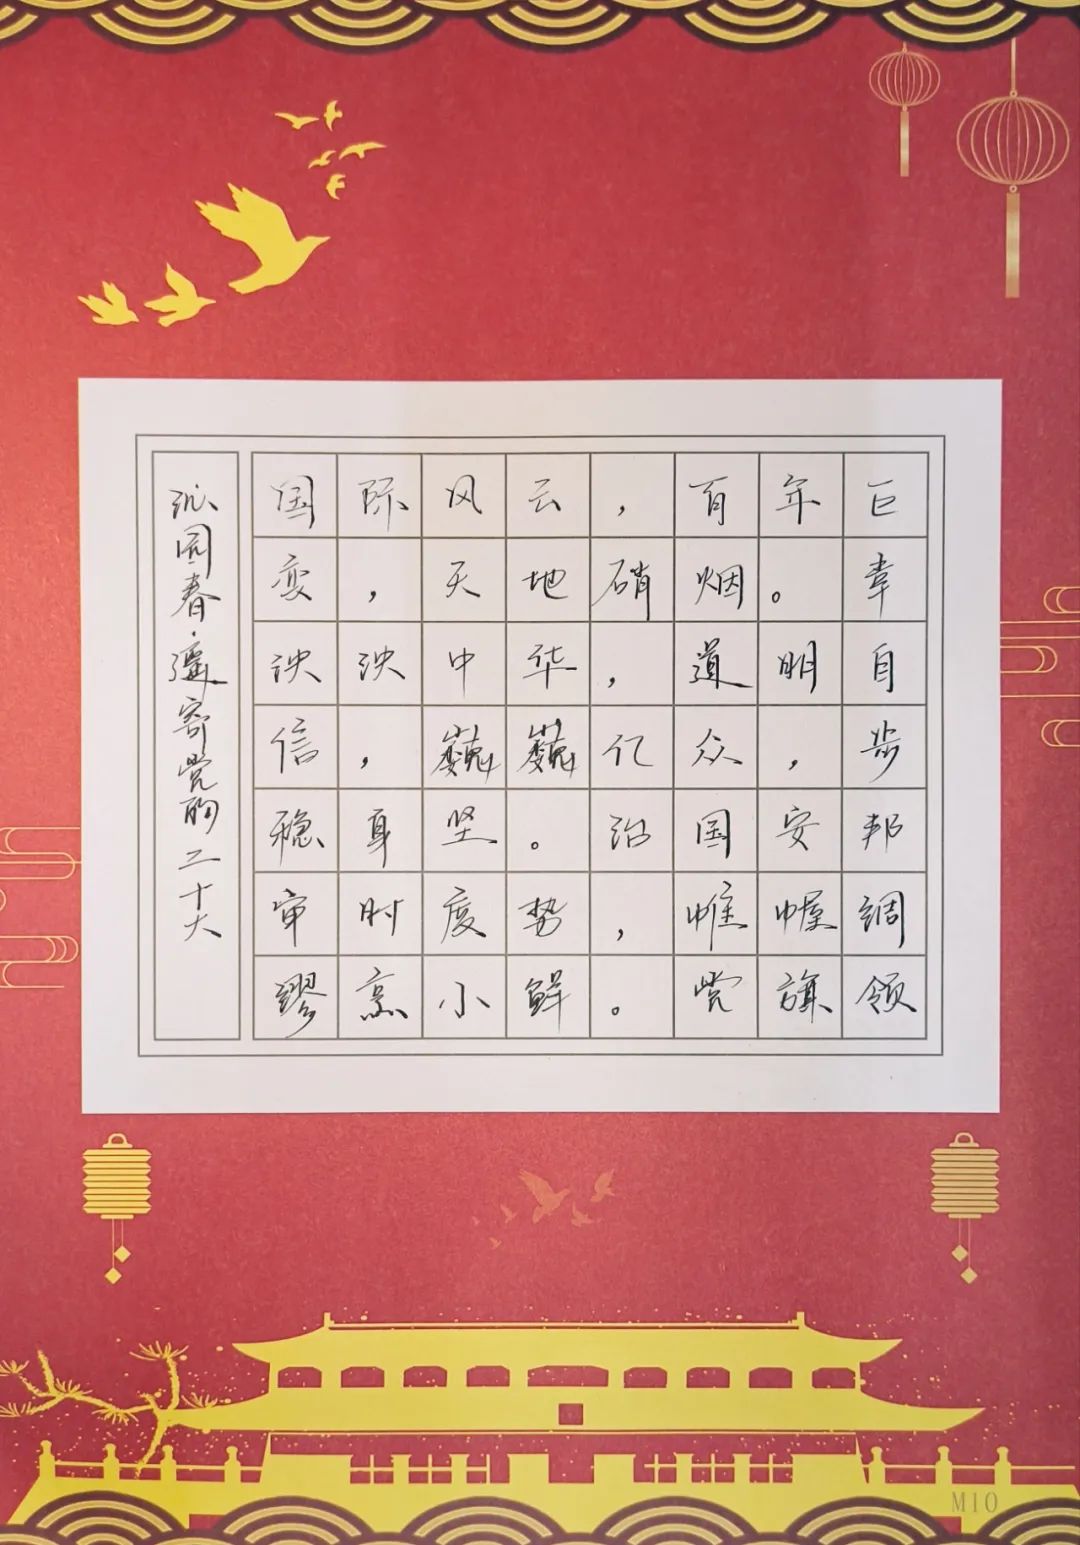 沁园春·遥寄党的二十大
国际风云，百年巨
变，天地硝烟。幸
泱泱中华，道明自
信，巍巍亿众，步
稳身坚。治国安邦
审时度势，帷幄调
缪烹小鲜。党旗领
M10